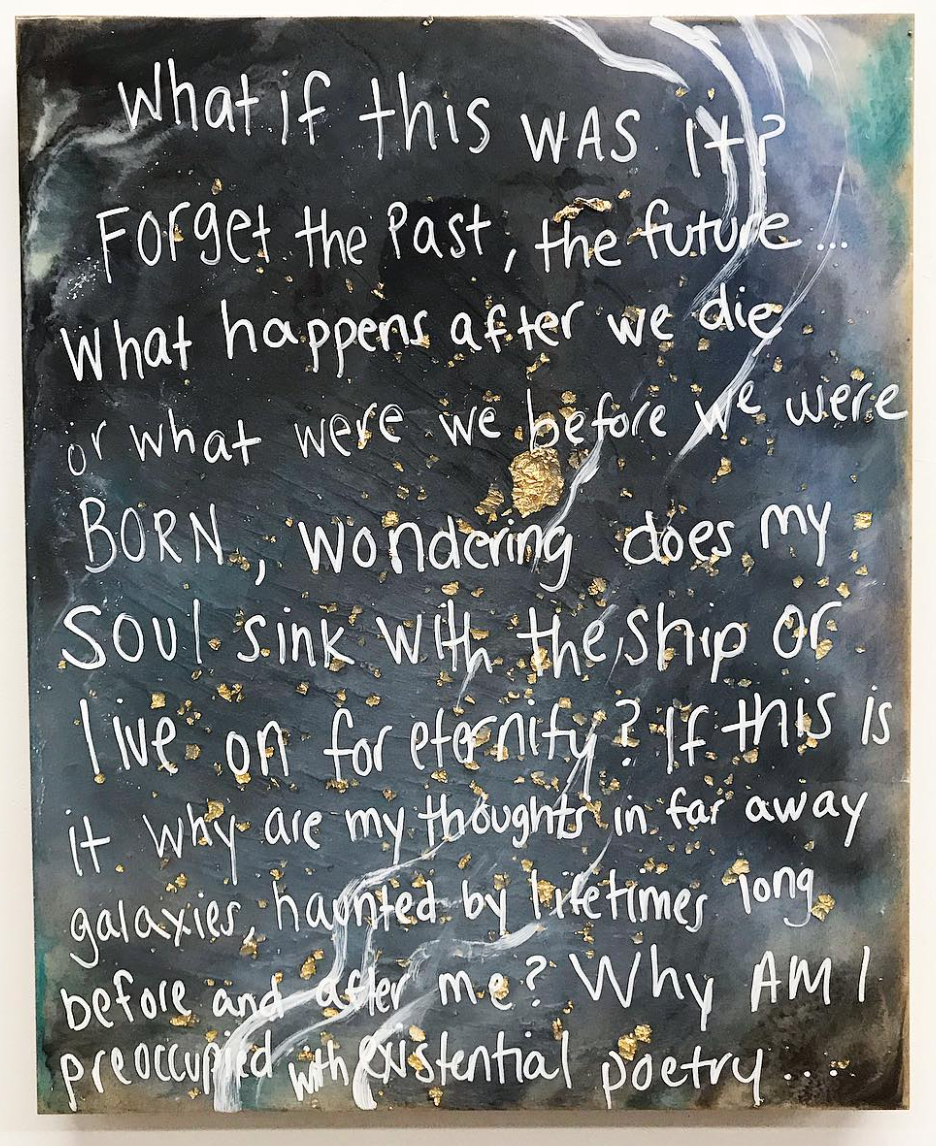 What if this WAS it?
Forget the Past, the future...
What happens after we die
or what were we before we were
BORN, wondering does my
Soul sink with the ship or
live on for eternity? If this is
it why are my thoughts in far away
galaxies, haunted by lifetimes long
before and after me? Why AM I
preoccupied with existential poetry....